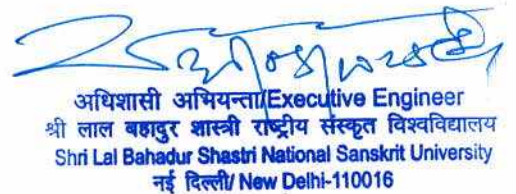 अधिशासी अभियन्ता/Executive Engineer
श्री लाल बहादुर शास्त्री राष्ट्रीय संस्कृत विश्वविद्यालय
Shri Lal Bahadur Shastri National Sanskrit University
नई दिल्ली/ New Delhi-110016